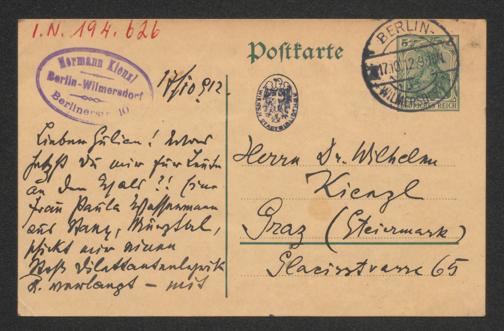 I.N. 194.626
Hermann Kienzl
Berlin-Wilmersdorf
Berlinerstr. 10
17/10 912.
Postkarte
BERLIN-
17.10.12
WILMERSDORF
DEUTSCHES REICH
Lieber Julien! Was
hetzt Du mir für Leute
an den Hals?! Eine
Frau Paula Wassermann
aus Stanz, Mürztal,
schickt mir einen
Stoß Dilettantenlyrik
u. verlangt – mit
Herrn Dr. Wilhelm
Kienzl
Graz (Steiermark)
Glacisstrasse 65